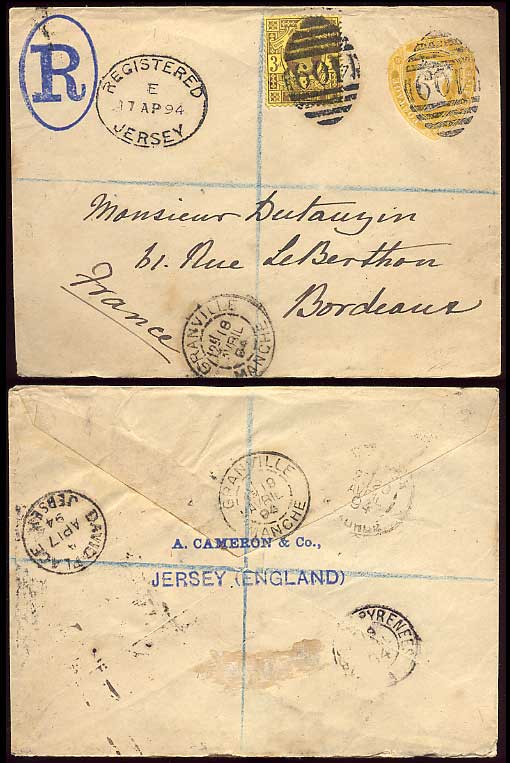 R
REGISTERED
E
17 AP 94
JERSEY
3
409
409
Monsieur Dutauzin
61. Rue Le Berthon
Bordeaux
France
GRANVILLE
18
AVRIL
94
MANCHE
GRANVILLE
18
AVRIL
94
MANCHE
DAVID PLACE
AP 17
94
JERSEY
A. CAMERON & Co.,
JERSEY (ENGLAND)
PYRENEES